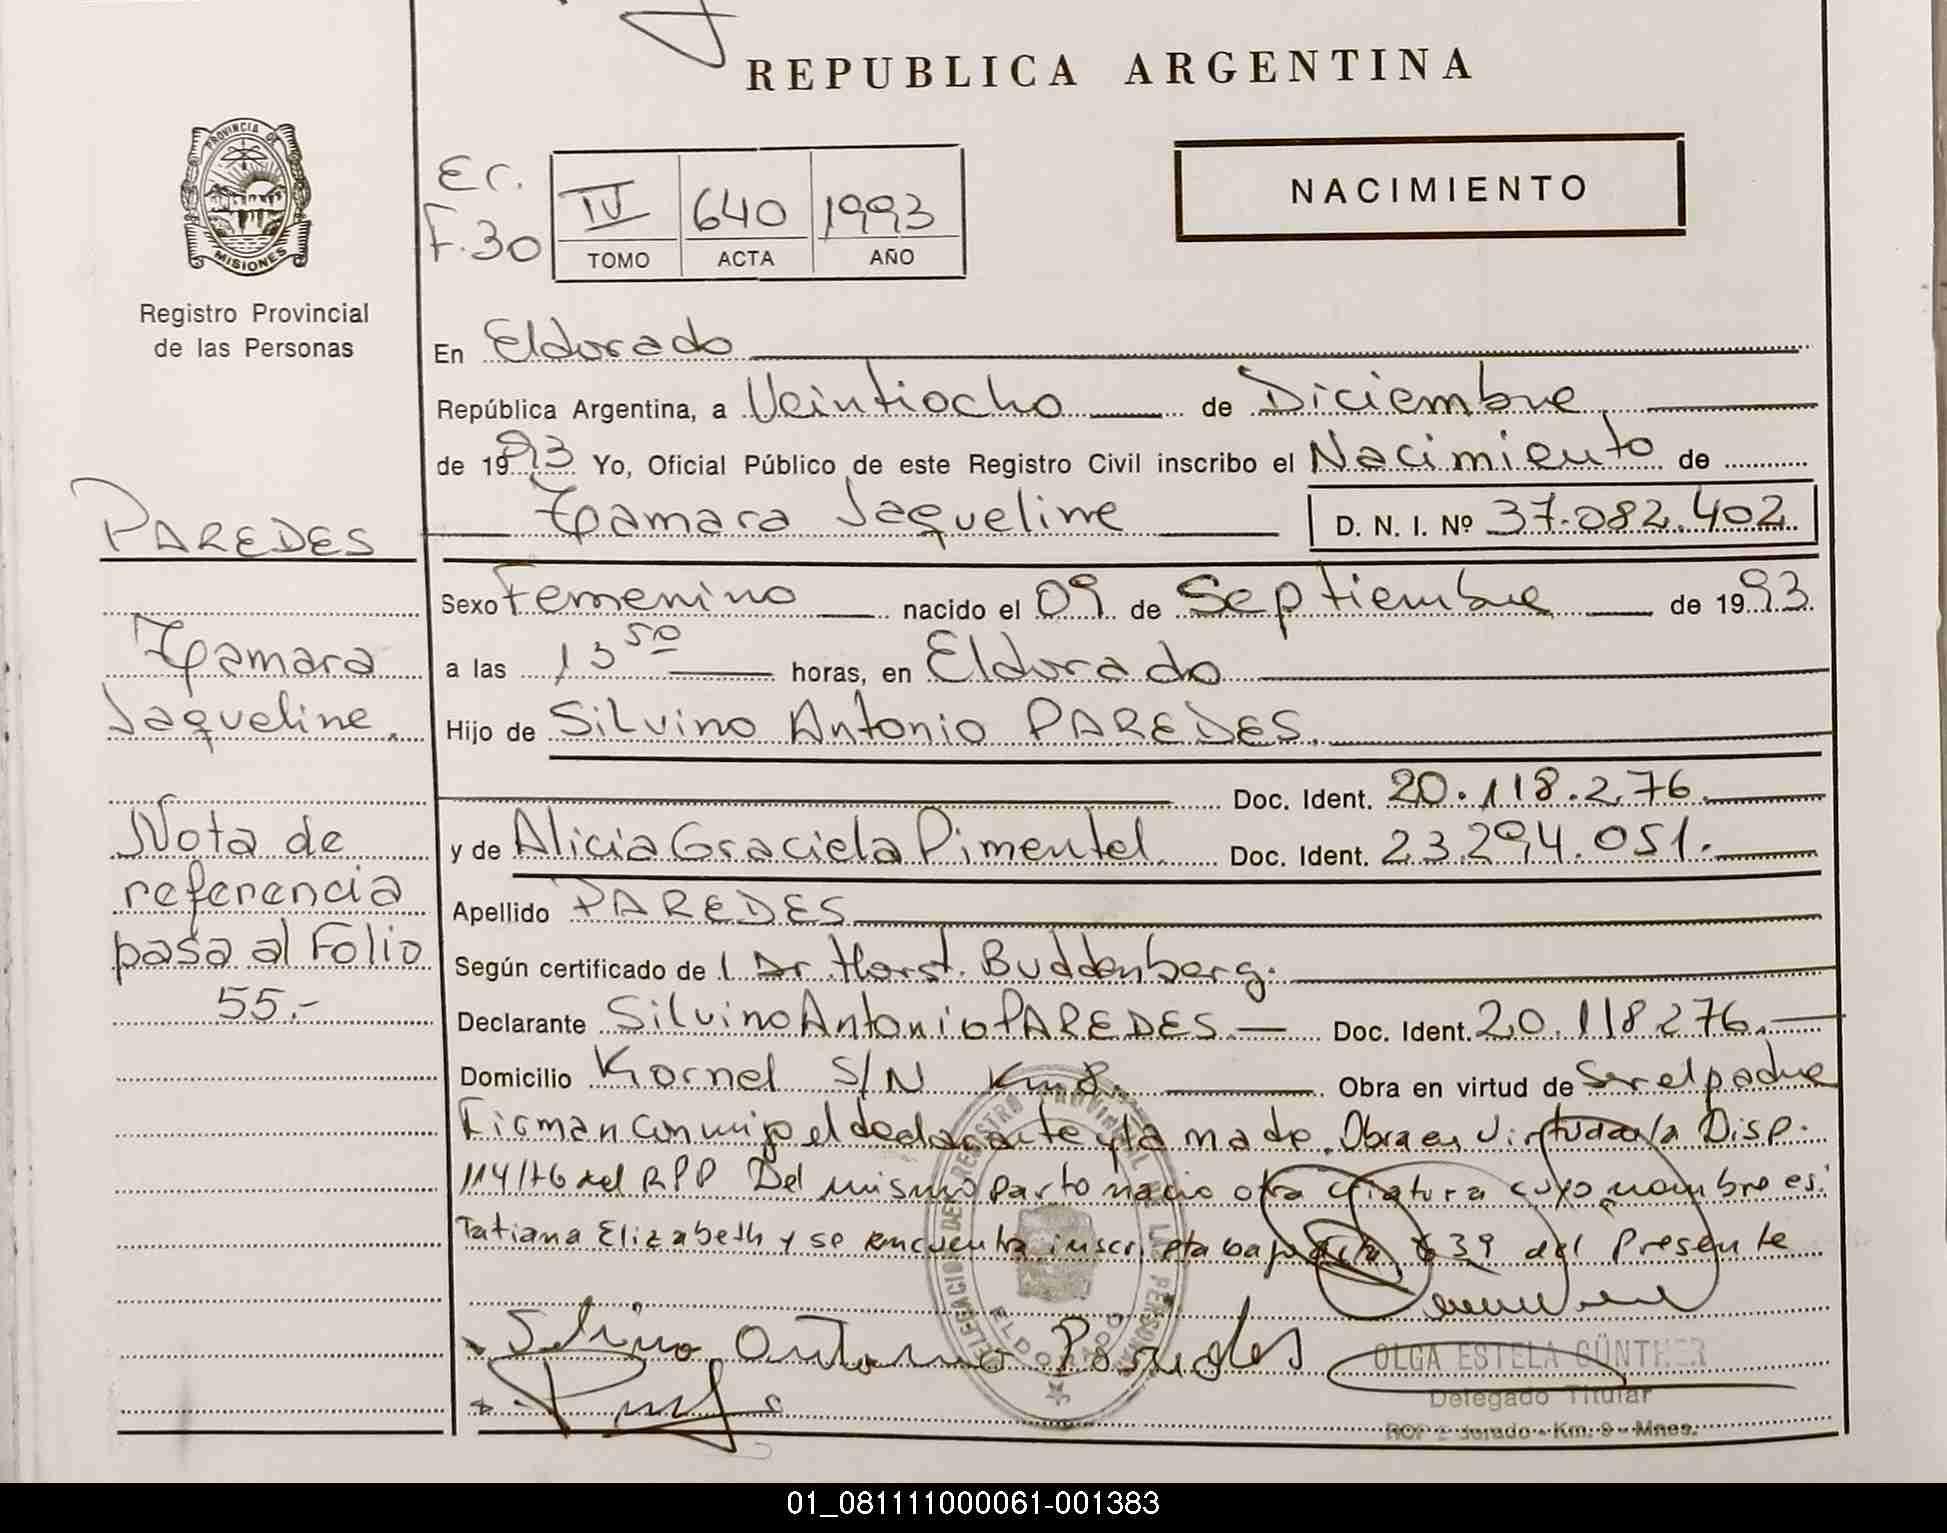 REPUBLICA ARGENTINA
PROVINCIA DE
MISIONES
Registro Provincial
de las Personas
Er.
F.30
IV 640 1993
TOMO ACTA AÑO
NACIMIENTO
En Eldorado
República Argentina, a Veintiocho de Diciembre
de 1993 Yo, Oficial Público de este Registro Civil inscribo el Nacimiento de
Thamara Jaqueline D. N. I. Nº 37.082.402
PAREDES
Thamara
Jaqueline.
Nota de
referencia
pasa al Folio
55.-
Sexo Femenino nacido el 09 de Septiembre de 1993
a las 13 50 horas, en Eldorado
Hijo de Silvino Antonio PAREDES.
Doc. Ident. 20.118.276.
y de Alicia Graciela Pimentel Doc. Ident. 23.294.051.
Apellido PAREDES
Según certificado de l Dr Horst Buddenberg.
Declarante Silvino Antonio PAREDES Doc. Ident. 20.118276.
Domicilio Kornel S/N Km 8. Obra en virtud de Ser el padre
Firman conmigo el declarante y la madre. Obra en virtud de la Disp.
114/76 del RPP Del mismo parto nacio otra criatura cuyo nombre es:
Tatiana Elizabeth y se encuentra inscripta bajo acta 639 del Presente
Silvino Antonio Paredes
DELEGACION DE REGISTRO PROVINCIAL DE LAS PERSONAS
ELDORADO
OLGA ESTELA GÜNTHER
Delegado Titular
Km. 9 - Mnes.
01_081111000061-001383